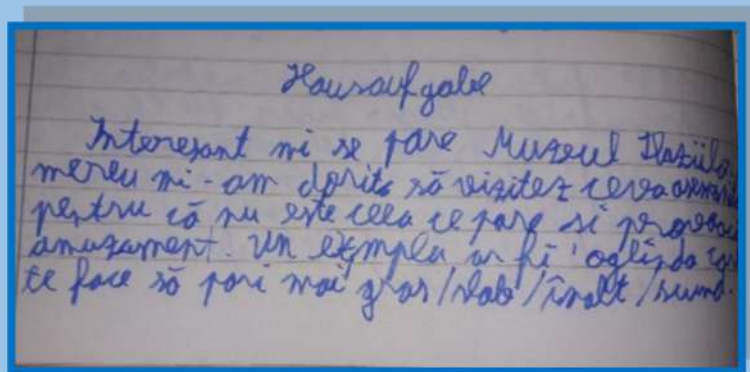 Hausaufgabe
Interesant mi se pare Muzeul Iluziilo
mereu mi-am dorit să vizitez ceva asemănă
pentru că nu este ceea ce pare si provoacă
amuzament. Un exmplu ar fi oglinda car
te face să pari mai gras/slab/înalt/scund.